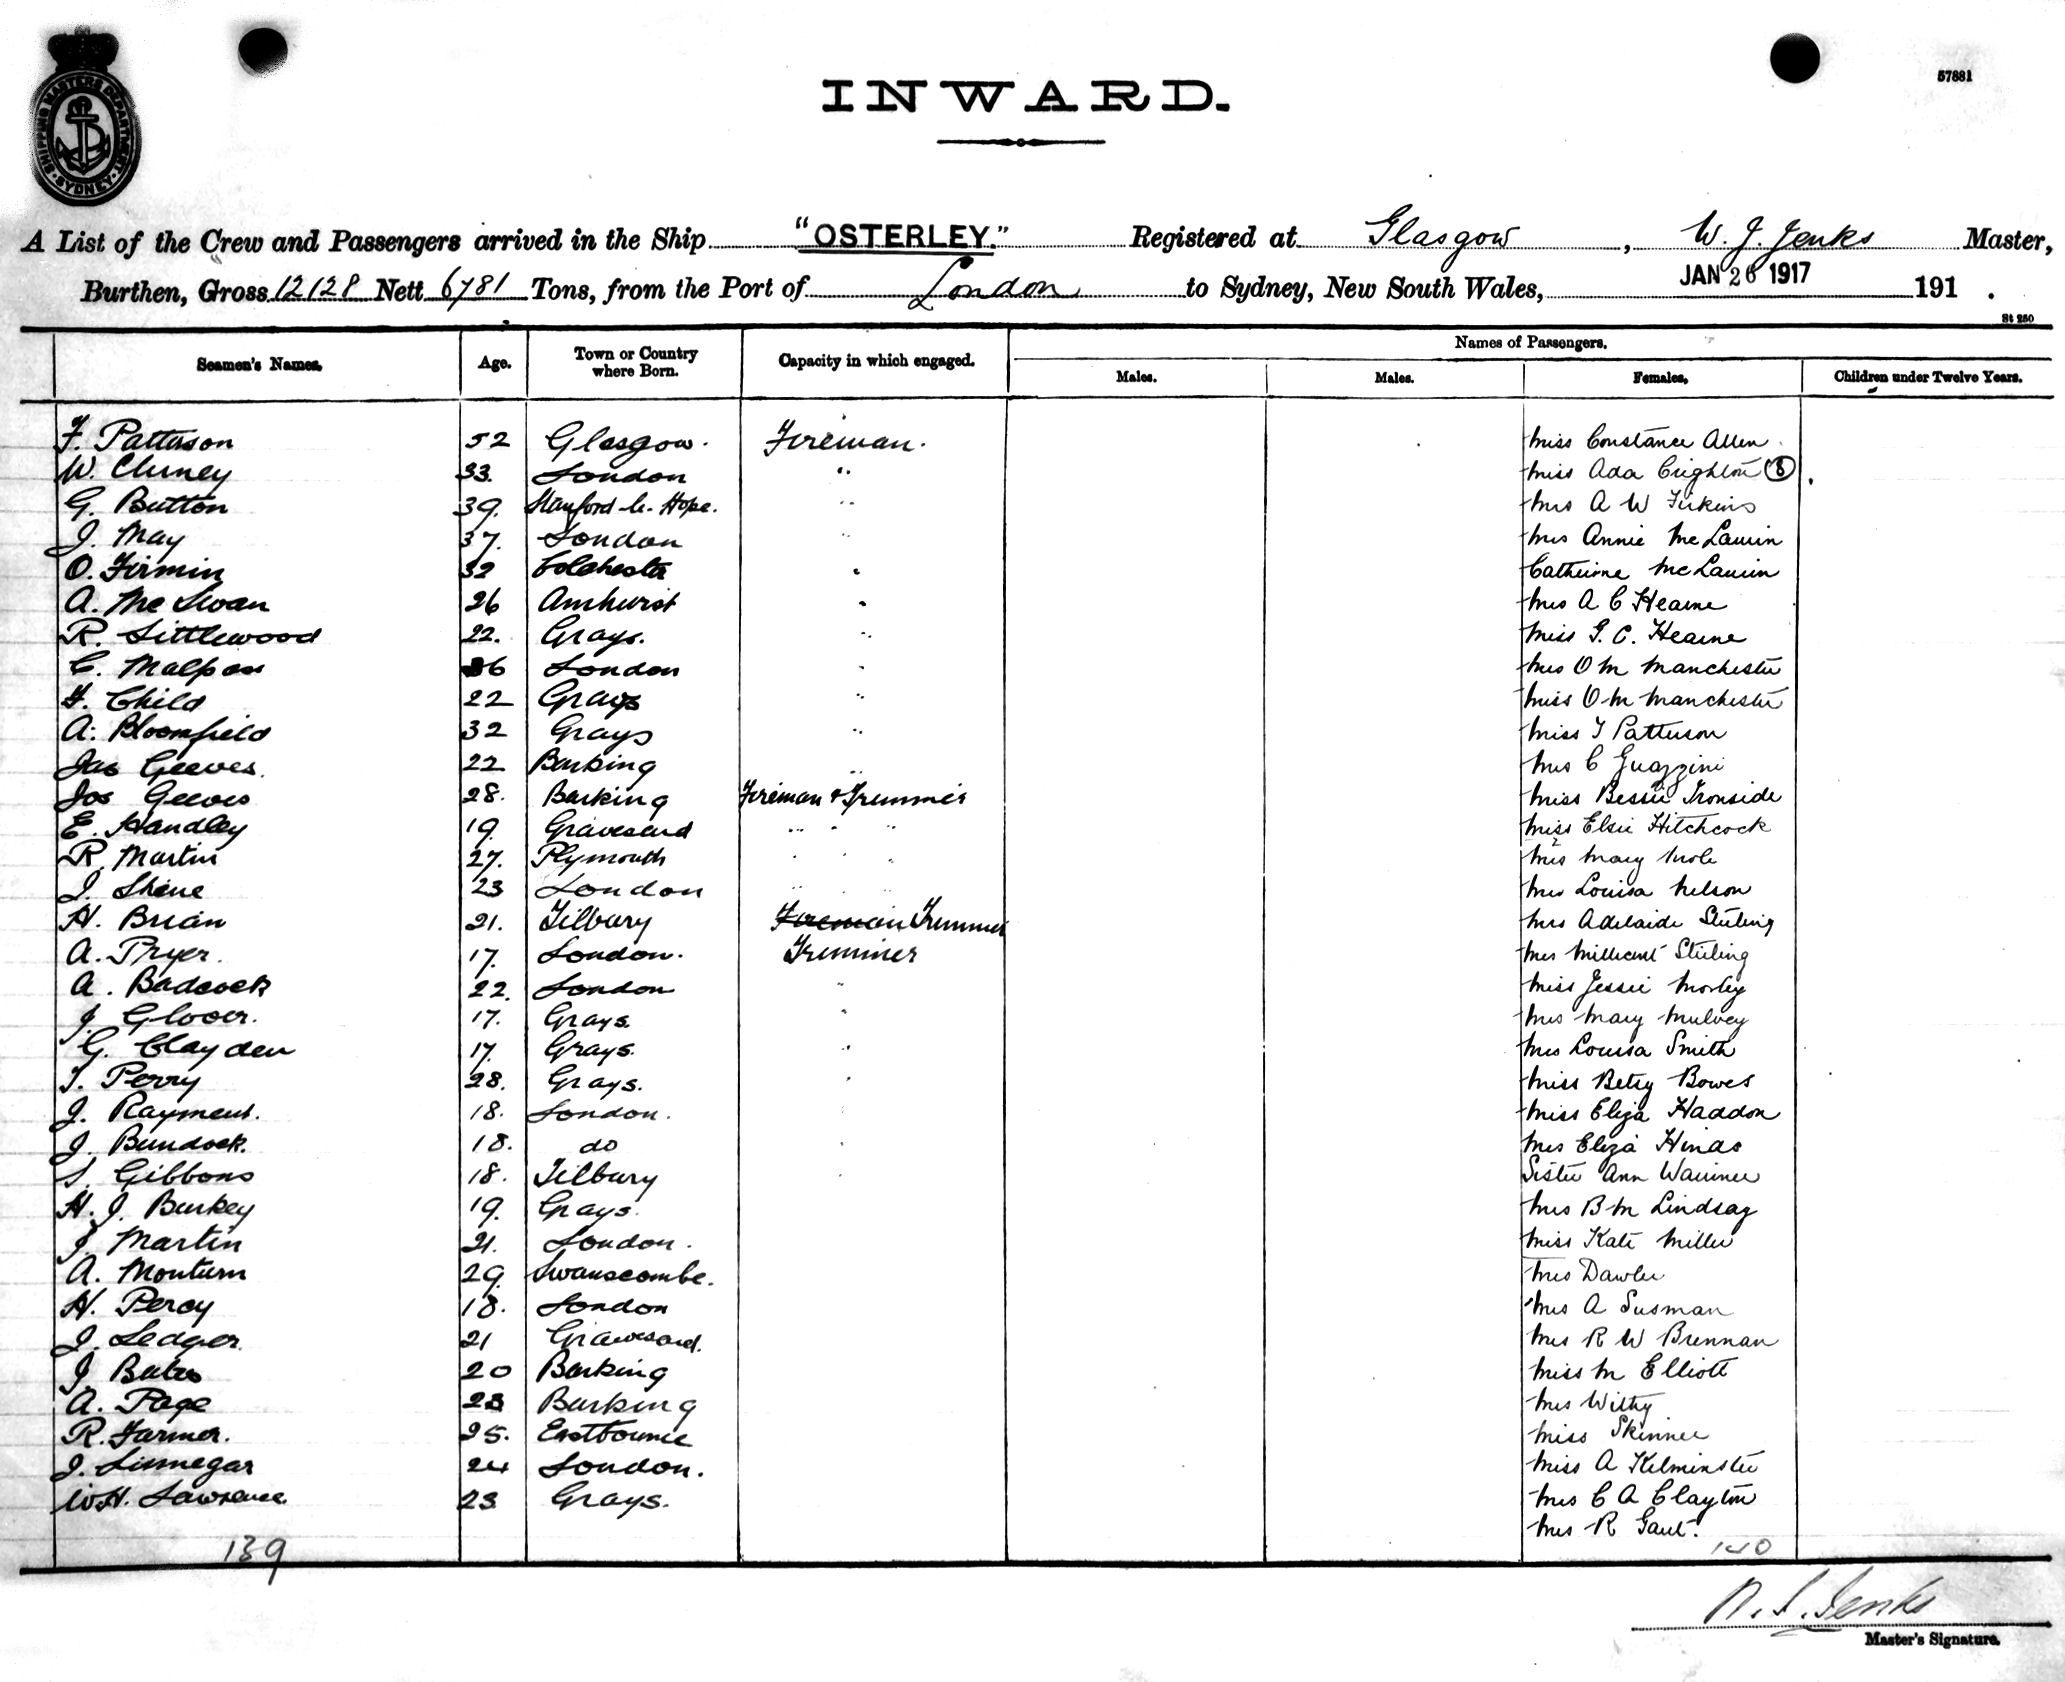 SHIPPING MASTERS DEPARTMENT. SYDNEY.
57881
INWARD.
A List of the Crew and Passengers arrived in the Ship "OSTERLEY." Registered at Glasgow, W. J. Jenks Master,
Burthen, Gross 12128 Nett 6781 Tons, from the Port of London to Sydney, New South Wales, JAN 26 1917 191 .
St 250
Names of Passengers.
Seamen's Names. Age. Town or Country where Born. Capacity in which engaged. Males. Males. Females. Children under Twelve Years.
F. Patterson 52 Glasgow. Fireman. Miss Constance Allen
W. Cluney 33. London " Miss Ada Crighton (8)
G. Button 39. Stanford-le-Hope. " Mrs A W Firkins
J. May 37. London " Mrs Annie McLaurin
O. Firmin 32 Colchester " Catherine McLaurin
A. McSwan 26 Amhurst " Mrs A C Hearne
R. Littlewood 22. Grays. " Miss G. C. Hearne
C. Malpas 36 London " Mrs O M Manchester
F. Child 22 Grays " Miss O M Manchester
A. Bloomfield 32 Grays " Miss I Patterson
Jas Geeves. 22 Barking " Mrs C Guazzini
Jos Geeves 28. Barking Fireman & Trimmer Miss Bessie Ironside
E. Handley 19. Gravesend " " " Miss Elsie Hitchcock
R. Martin 27. Plymouth " " " Mrs Mary Mole
J. Shine 23 London " " " Mrs Louisa Nelson
H. Brian 21. Tilbury Fireman Trimmer Mrs Adelaide Stirling
A. Pryer. 17. London. Trimmer Mrs Millicent Stirling
A. Badcock 22. London " Miss Jessie Morley
J. Glover. 17. Grays. " Mrs Mary Mulvey
G. Clayden 17. Grays. " Mrs Louisa Smith
T. Perry 28. Grays. " Miss Betsy Bowes
J. Rayment. 18. London. " Miss Eliza Haddon
J. Bundock. 18. do " Mrs Eliza Hinds
S. Gibbons 18. Tilbury " Sister Ann Warriner
H. J. Burkey 19. Grays. Mrs B M Lindsay
J. Martin 21. London. Miss Kate Miller
A. Monturn 29. Swanscombe. Mrs Dawler
H. Percy 18. London Mrs A Susman
J. Ledger. 21 Gravesend. Mrs R W Brennan
J Bates 20 Barking Miss M Elliott
A. Page 23 Barking Mrs Withy
R. Farmer. 25. Eastbourne Miss Skinner
J. Linnegar 24 London. Miss A Kelminster
W. H. Lawrence. 23 Grays. Mrs C A Clayton
Mrs R Gault.
139 140
W. J. Jenks
Master's Signature.